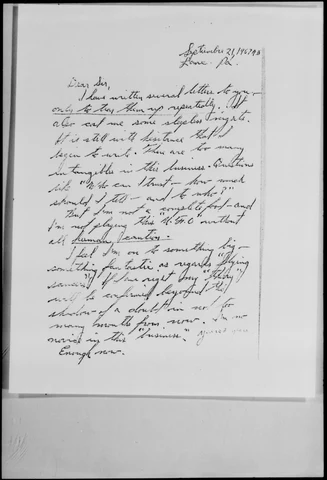 September 23, 1967
Pa.
Dear Sir,
I have written several letters to you -
only to tear them up repeatedly. It
also cost me some sleepless nights.
It is still with hesitance that I
begin to write. There are too many
intangibles in this business. Questions
like "Who can I trust - how much
should I tell - and to who?"
But I'm not a complete fool - and
I'm not playing this "U.F.O" without
all human caution -
I feel I'm on to something big -
something fantastic as regards "flying
saucers". If I'm right my "theory"
will be confirmed beyond the
shadow of a doubt in not too
many months from now. I'm no
novice in this "business."
Enough now.